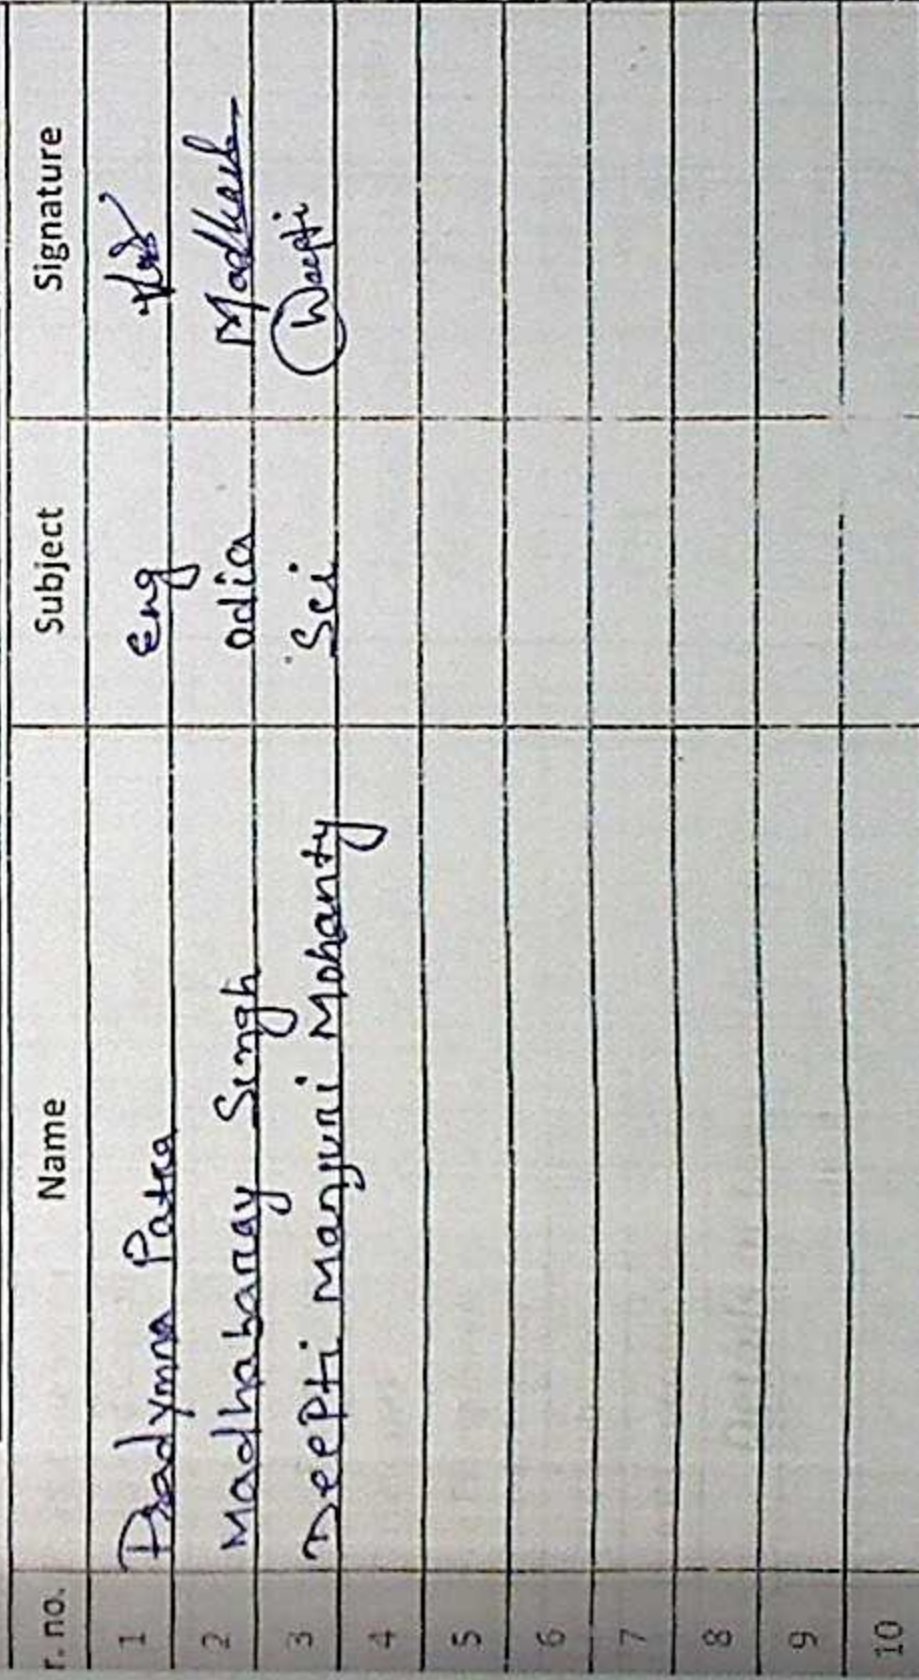 r. no. Name Subject Signature
1 Pradymna Patra Eng
2 Madhabaray Singh odia Madhab
3 Deepti Manjuri Mohanty Sci Deepti
4
5
6
7
8
9
10